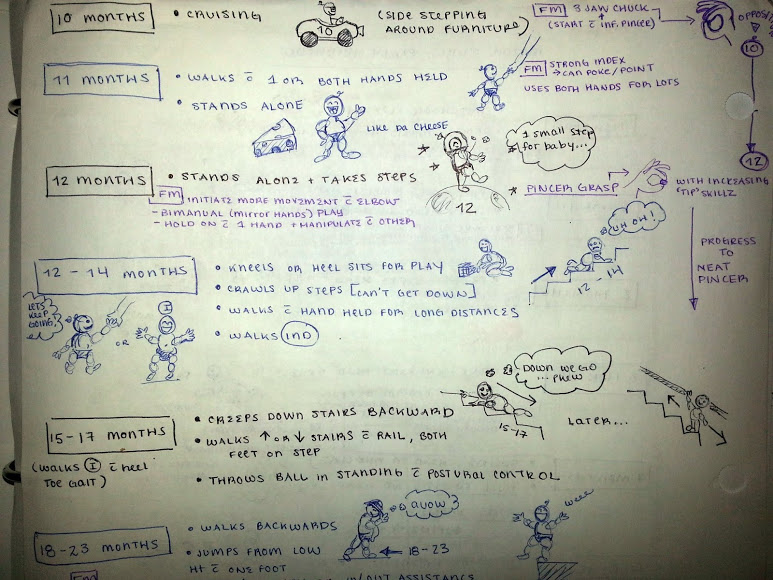 10 MONTHS
• CRUISING
10
(SIDE STEPPING
AROUND FURNITURE)
FM 3 JAW CHUCK
(START c̄ INF. PINCER)
10
11 MONTHS
• WALKS c̄ 1 OR BOTH HANDS HELD
• STANDS ALONE
LIKE DA CHEESE
FM STRONG INDEX
→ CAN POKE/POINT
USES BOTH HANDS FOR LOTS
1 small step
for baby...
12
12 MONTHS
• STANDS ALONE + TAKES STEPS
FM INITIATE MORE MOVEMENT c̄ ELBOW
- BIMANUAL (MIRROR HANDS) PLAY
- HOLD ON c̄ 1 HAND + MANIPULATE c̄ OTHER
12
* PINCER GRASP
WITH INCREASING
"TIP" SKILLZ
PROGRESS
TO
NEAT
PINCER
12-14 MONTHS
• KNEELS OR HEEL SITS FOR PLAY
• CRAWLS UP STEPS [CAN'T GET DOWN]
• WALKS c̄ HAND HELD FOR LONG DISTANCES
• WALKS IND
UH OH!
12-14
LETS
KEEP
GOING!
OR
I
15-17 MONTHS
(WALKS I c̄ heel
TOE GAIT)
• CREEPS DOWN STAIRS BACKWARD
• WALKS ↑ OR ↓ STAIRS c̄ RAIL, BOTH
FEET ON STEP
• THROWS BALL IN STANDING c̄ POSTURAL CONTROL
DOWN WE GO
... PHEW
15-17
LATER...
18-23 MONTHS
• WALKS BACKWARDS
• JUMPS FROM LOW
HT c̄ ONE FOOT
18-23
weee